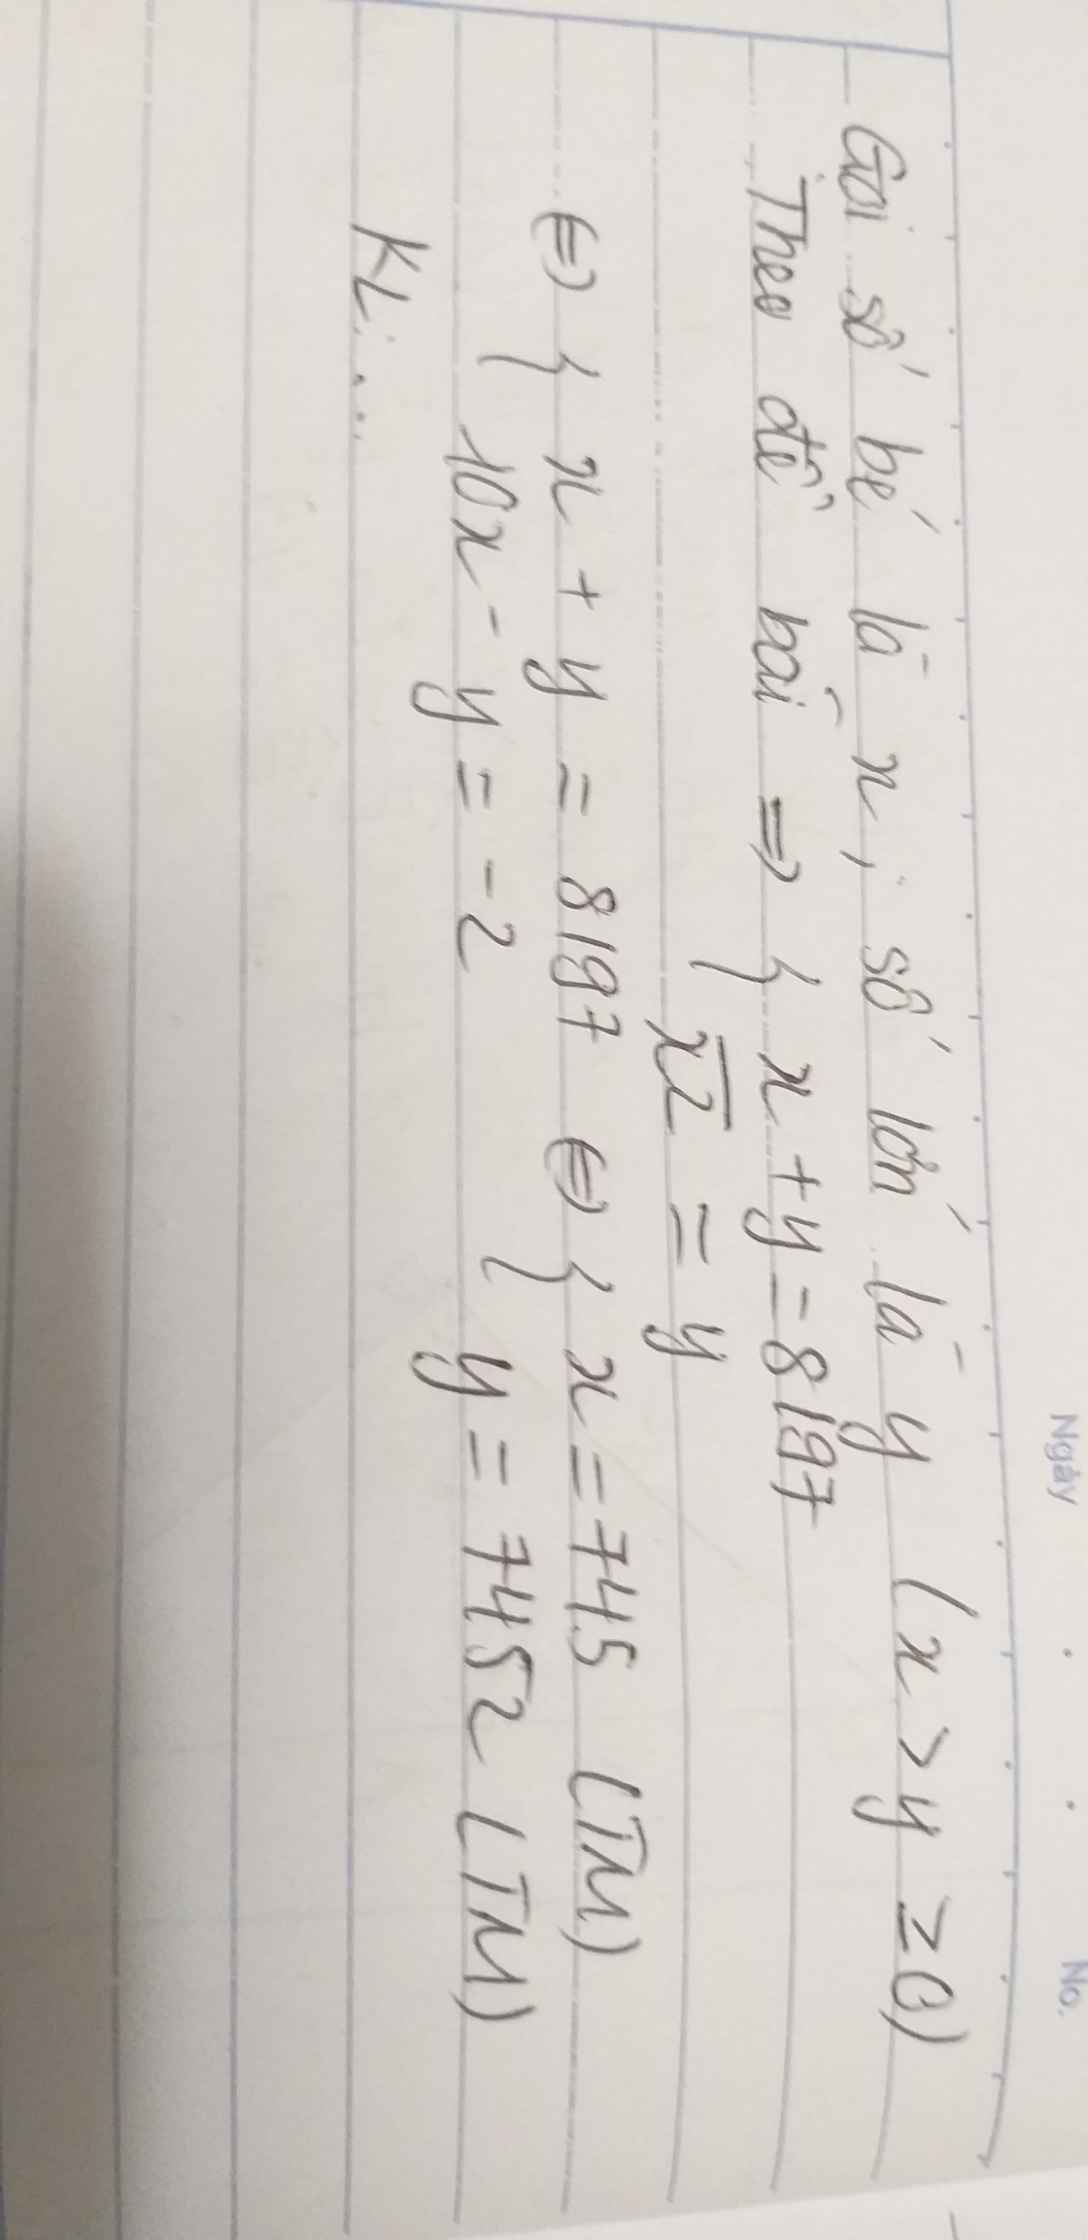 Ngày No.
Gọi số bé là x, số lớn là y (x > y ≥ 0)
Theo đề bài ⇒ { x + y = 8197
x2̅ = y
⇔ { x + y = 8197 ⇔ { x = 745 (TM)
10x - y = -2 y = 7452 (TM)
KL: ...